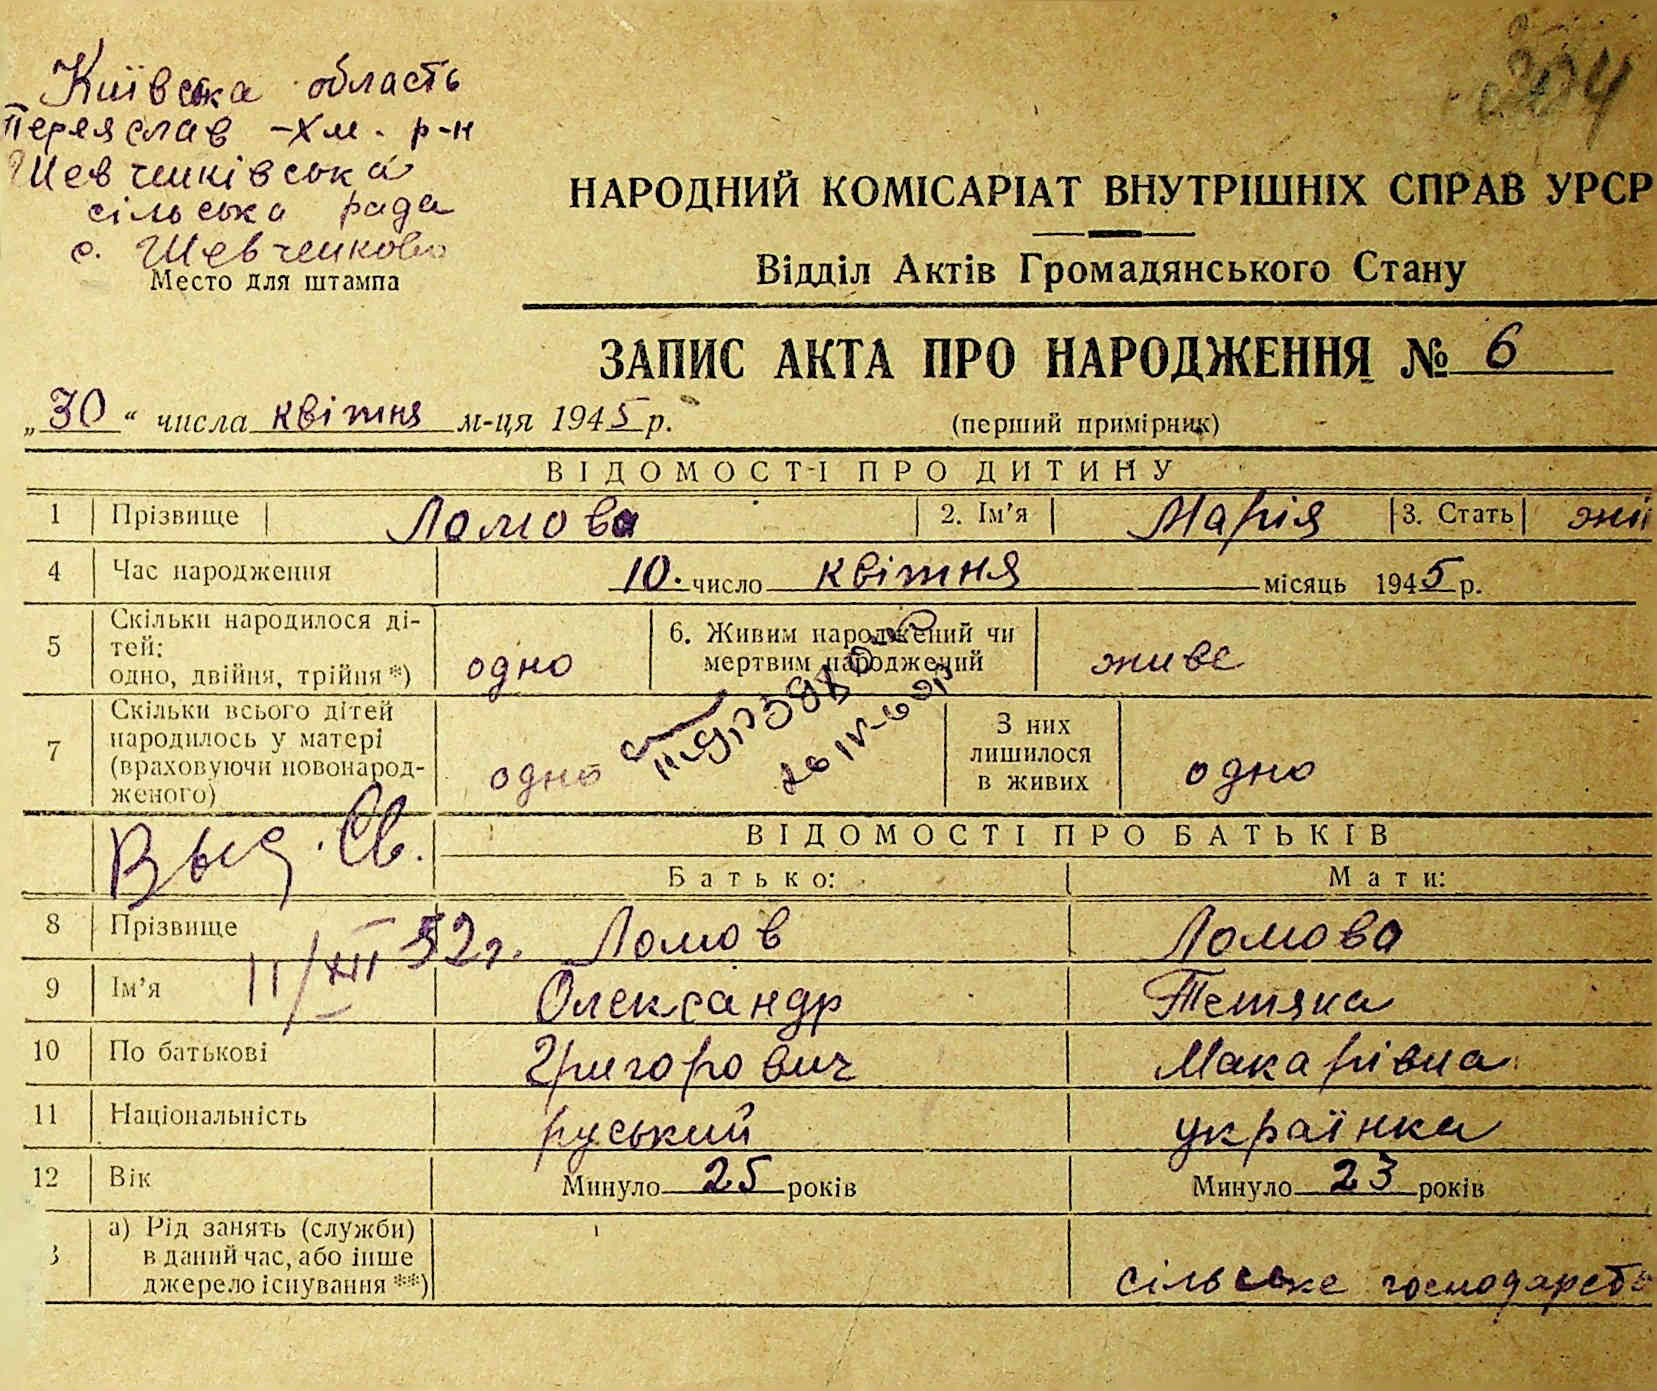 204
Київська область
Переяслав -Хм. р-н
Шевченківська
сільська рада
с. Шевченково
Место для штампа
НАРОДНИЙ КОМІСАРІАТ ВНУТРІШНІХ СПРАВ УРСР
Відділ Актів Громадянського Стану
ЗАПИС АКТА ПРО НАРОДЖЕННЯ № 6
„30“ числа квітня м-ця 1945 р.
(перший примірник)
ВІДОМОСТІ ПРО ДИТИНУ
1 Прізвище Ломова 2. Ім'я Марія 3. Стать жі
4 Час народження 10. число квітня місяць 1945 р.
5 Скільки народилося ді-
тей:
одно, двійня, трійня *) одно
6. Живим народжений чи
мертвим народжений живе
7 Скільки всього дітей
народилось у матері
(враховуючи новонарод-
женого) одно
З них
лишилося
в живих одно
26 IV-60р
Выд. Св.
11/XII 52г.
ВІДОМОСТІ ПРО БАТЬКІВ
Батько: Мати:
8 Прізвище Ломов Ломова
9 Ім'я Олександр Тетяна
10 По батькові Григорович Макарівна
11 Національність руський українка
12 Вік Минуло 25 років Минуло 23 років
3 а) Рід занять (служби)
в даний час, або інше
джерело існування **) сільське господарств